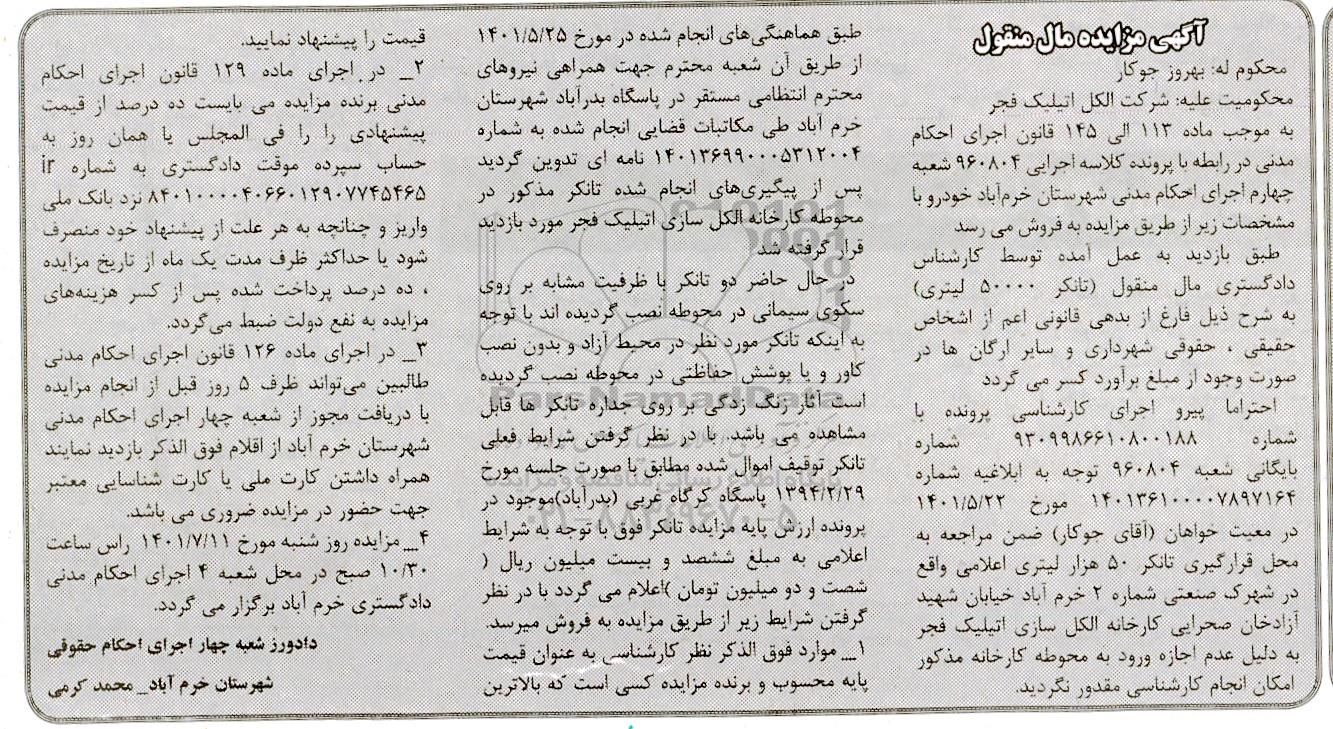 آگهی مزایده مال منقول
محکوم له: بهروز جوکار
محکومیت علیه: شرکت الکل اتیلیک فجر
به موجب ماده ۱۱۳ الی ۱۴۵ قانون اجرای احکام
مدنی در رابطه با پرونده کلاسه اجرایی ۹۶۰۸۰۴ شعبه
چهارم اجرای احکام مدنی شهرستان خرم‌آباد خودرو با
مشخصات زیر از طریق مزایده به فروش می رسد
طبق بازدید به عمل آمده توسط کارشناس
دادگستری مال منقول (تانکر ۵۰۰۰۰ لیتری)
به شرح ذیل فارغ از بدهی قانونی اعم از اشخاص
حقیقی ، حقوقی شهرداری و سایر ارگان ها در
صورت وجود از مبلغ برآورد کسر می گردد
احتراما پیرو اجرای کارشناسی پرونده با
شماره ۹۳۰۹۹۸۶۶۱۰۸۰۰۱۸۸ شماره
بایگانی شعبه ۹۶۰۸۰۴ توجه به ابلاغیه شماره
۱۴۰۱۳۶۱۰۰۰۰۷۸۹۷۱۶۴ مورخ ۱۴۰۱/۵/۲۲
در معیت خواهان (آقای جوکار) ضمن مراجعه به
محل قرارگیری تانکر ۵۰ هزار لیتری اعلامی واقع
در شهرک صنعتی شماره ۲ خرم آباد خیابان شهید
آزادخان صحرایی کارخانه الکل سازی اتیلیک فجر
به دلیل عدم اجازه ورود به محوطه کارخانه مذکور
امکان انجام کارشناسی مقدور نگردید.
طبق هماهنگی‌های انجام شده در مورخ ۱۴۰۱/۵/۲۵
از طریق آن شعبه محترم جهت همراهی نیروهای
محترم انتظامی مستقر در پاسگاه بدرآباد شهرستان
خرم آباد طی مکاتبات قضایی انجام شده به شماره
۱۴۰۱۳۶۹۹۰۰۰۵۳۱۲۰۰۴ نامه ای تدوین گردید
پس از پیگیری‌های انجام شده تانکر مذکور در
محوطه کارخانه الکل سازی اتیلیک فجر مورد بازدید
قرار گرفته شد
در حال حاضر دو تانکر با ظرفیت مشابه بر روی
سکوی سیمانی در محوطه نصب گردیده اند با توجه
به اینکه تانکر مورد نظر در محیط آزاد و بدون نصب
کاور و یا پوشش حفاظتی در محوطه نصب گردیده
است آثار زنگ زدگی بر روی جداره تانکر ها قابل
مشاهده می باشد. با در نظر گرفتن شرایط فعلی
تانکر توقیف اموال شده مطابق با صورت جلسه مورخ
۱۳۹۴/۲/۲۹ پاسگاه کرگاه غربی (بدرآباد)موجود در
پرونده ارزش پایه مزایده تانکر فوق با توجه به شرایط
اعلامی به مبلغ ششصد و بیست میلیون ریال (
شصت و دو میلیون تومان )اعلام می گردد با در نظر
گرفتن شرایط زیر از طریق مزایده به فروش میرسد.
۱_ موارد فوق الذکر نظر کارشناسی به عنوان قیمت
پایه محسوب و برنده مزایده کسی است که بالاترین
قیمت را پیشنهاد نمایید.
۲_ در اجرای ماده ۱۲۹ قانون اجرای احکام
مدنی برنده مزایده می بایست ده درصد از قیمت
پیشنهادی را را فی المجلس یا همان روز به
حساب سپرده موقت دادگستری به شماره ir
۸۴۰۱۰۰۰۰۴۰۶۶۰۱۲۹۰۷۷۴۵۴۶۵ نزد بانک ملی
واریز و چنانچه به هر علت از پیشنهاد خود منصرف
شود یا حداکثر ظرف مدت یک ماه از تاریخ مزایده
، ده درصد پرداخت شده پس از کسر هزینه‌های
مزایده به نفع دولت ضبط می‌گردد.
۳_ در اجرای ماده ۱۲۶ قانون اجرای احکام مدنی
طالبین می‌تواند ظرف ۵ روز قبل از انجام مزایده
با دریافت مجوز از شعبه چهار اجرای احکام مدنی
شهرستان خرم آباد از اقلام فوق الذکر بازدید نمایند
همراه داشتن کارت ملی یا کارت شناسایی معتبر
جهت حضور در مزایده ضروری می باشد.
۴_ مزایده روز شنبه مورخ ۱۴۰۱/۷/۱۱ راس ساعت
۱۰/۳۰ صبح در محل شعبه ۴ اجرای احکام مدنی
دادگستری خرم آباد برگزار می گردد.
دادورز شعبه چهار اجرای احکام حقوقی
شهرستان خرم آباد_ محمد کرمی
ParsNamadData